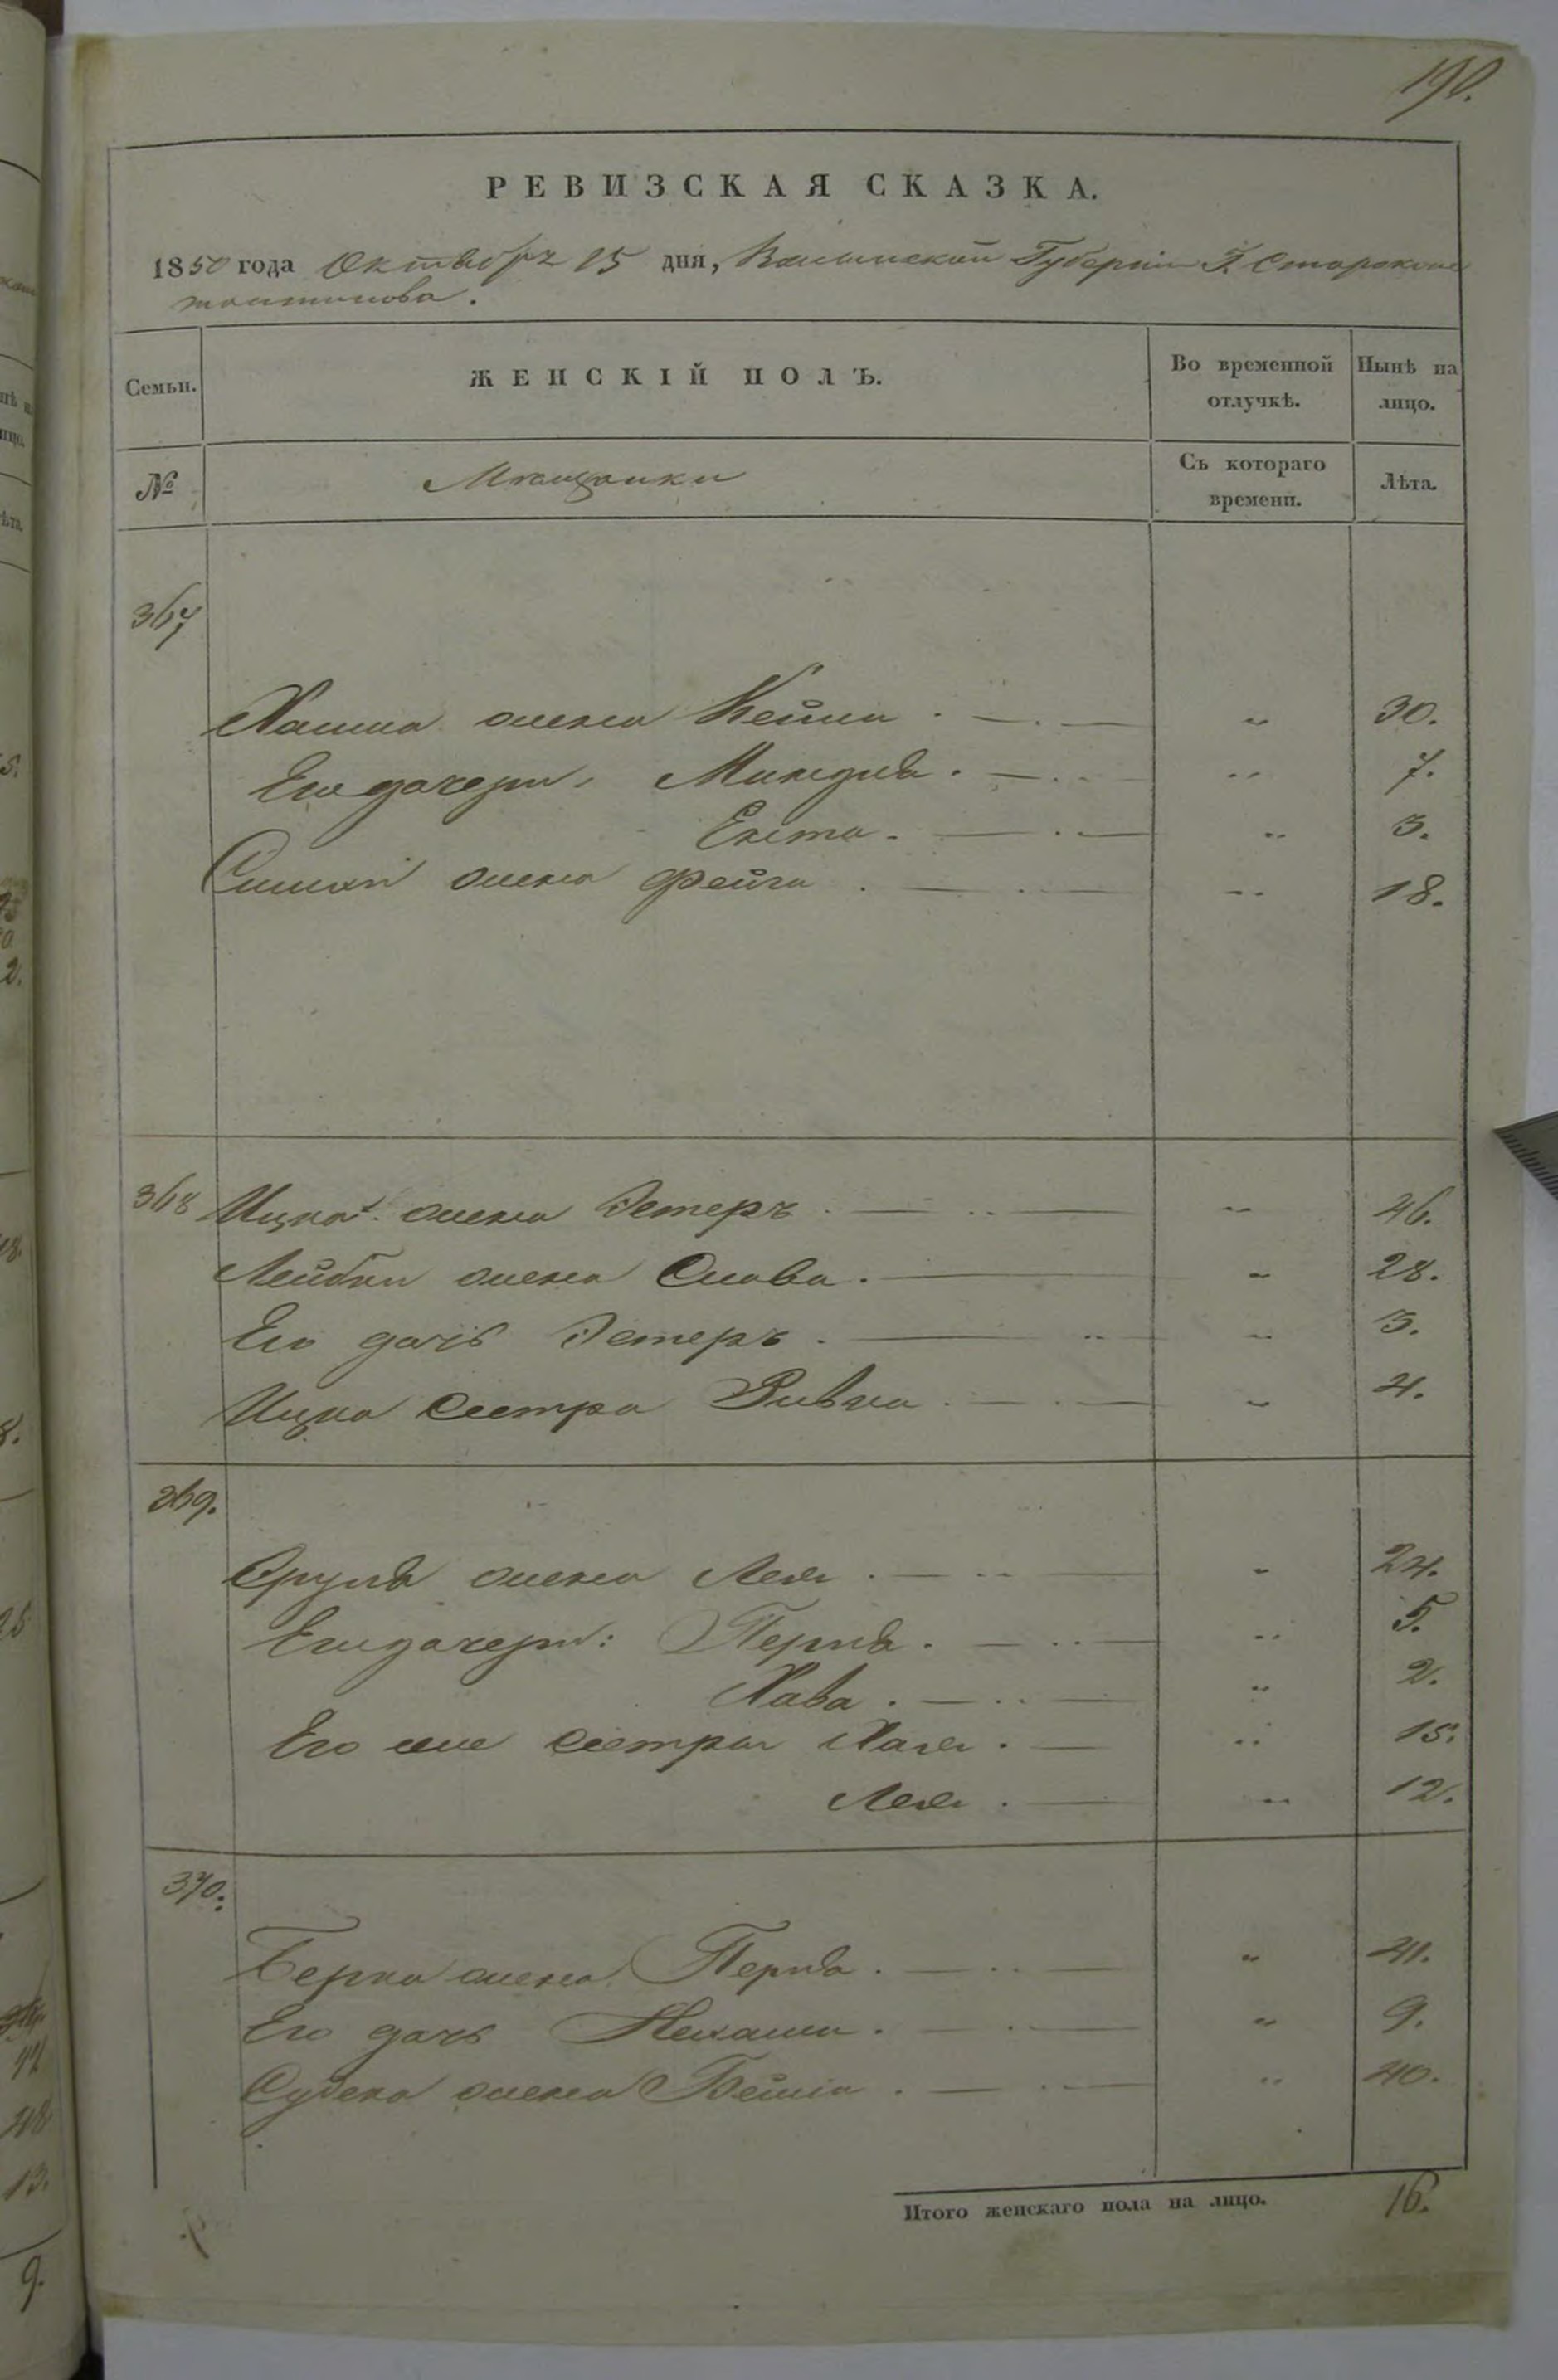 190.
РЕВИЗСКАЯ СКАЗКА.
1850 года Октября 15 дня, Волынской Губернии Г. Старокон
стантинова.
Семьи. ЖЕНСКІЙ ПОЛЪ. Во временной отлучкѣ. Нынѣ на лицо.
№ Мѣщанки Съ котораго времени. Лѣта.
367
Хаима жена Кейла . — . — „ 30.
Его дочери, Миндля . — . „ 7.
Ента . — . — „ 3.
жена Фейга . — . — „ 18.
368 Ицка 1. жена Эстеръ . — .. — „ 46.
Лейбки жена Слова . — „ 28.
Его дочь Эстеръ . — .. „ 3.
Ицка сестра Ривка . — . — „ 4.
369.
Сруля жена Лея . — .. — „ 24.
Его дочери: Перля . — .. — „ 5.
Хава . — .. — „ 2.
Его же сестры Хая . — „ 15.
Лея . — „ 12.
370.
Берка жена Перля . — .. — „ 41.
Его дочь Нехама . — . — „ 9.
жена Бейла . — . — „ 40.
Итого женскаго пола на лицо. 16.